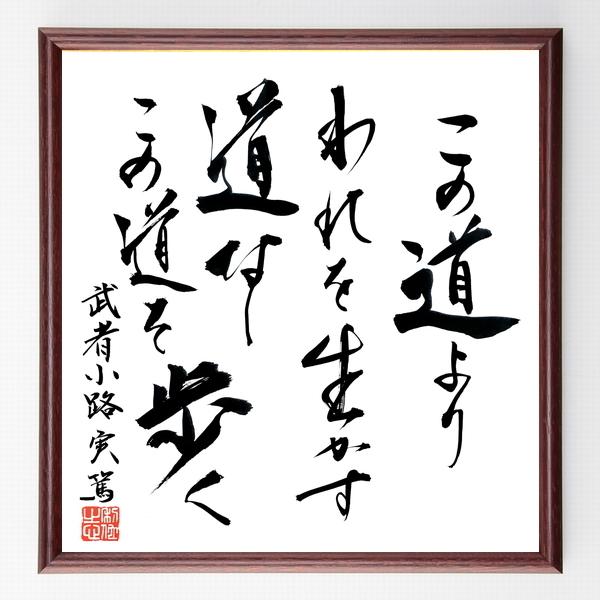 この道より
われを生かす
道なし
この道を歩く
武者小路実篤